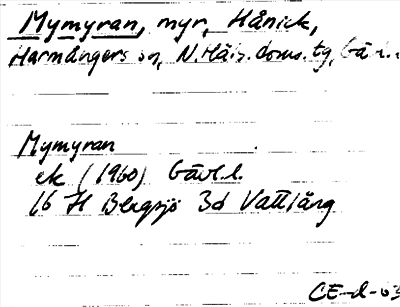 Mymyran, myr, Hånick,
Harmångers sn, N. Häls. doms. tg, Gävl.
Mymyran
ek (1960) Gävl.l.
16 H Bergsjö 3d Vattlång
CE-d-03